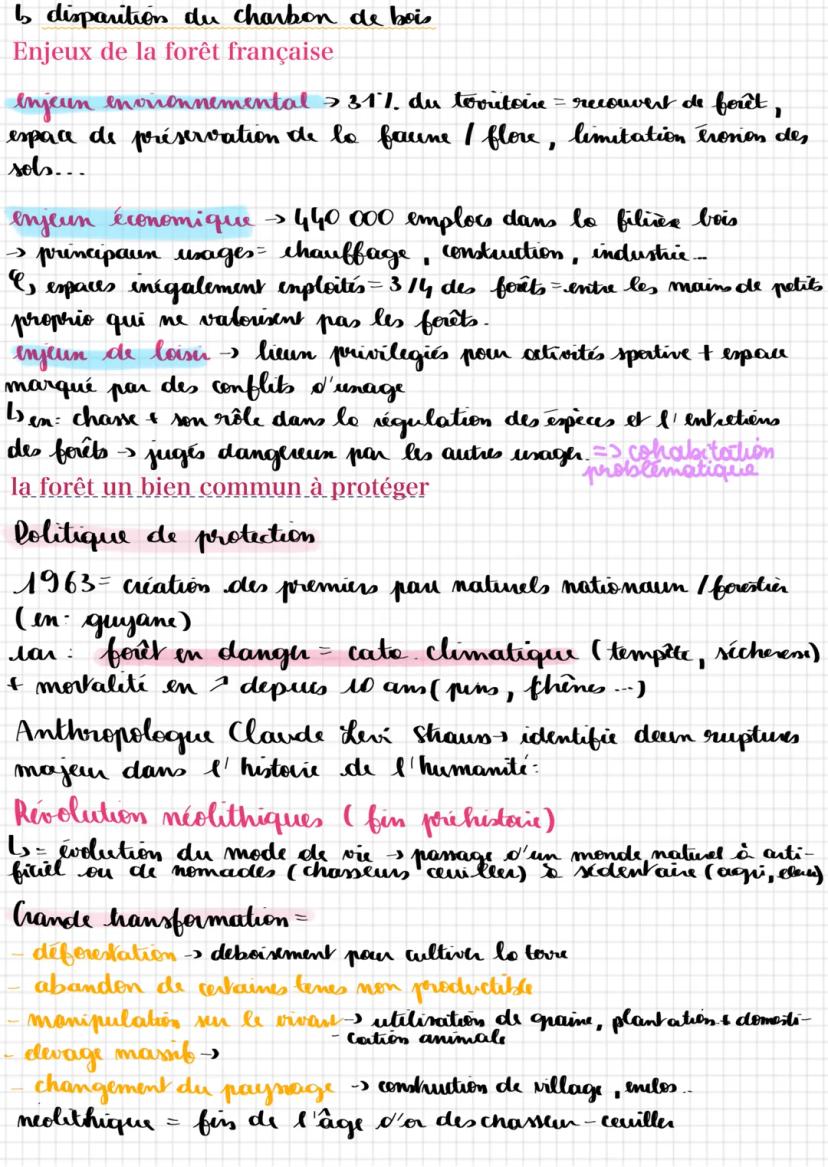 ↳ disparition du charbon de bois
Enjeux de la forêt française
enjeux environnemental → 31% du territoire = recouvert de forêt,
espace de préservation de la faune / flore, limitation érosion des
sols...
enjeux économique → 440 000 emplois dans la filière bois
→ principaux usages = chauffage, construction, industrie...
↳ espaces inégalement exploités = 3/4 des forêts = entre les mains de petits
proprio qui ne valorisent pas les forêts.
enjeux de loisir → lieux privilégiés pour activités sportive + espace
marqué par des conflits d'usage
↳ ex: chasse + son rôle dans la régulation des espèces et l'entretiens
des forêts → jugés dangereux par les autres usager. => cohabitation
problématique
la forêt un bien commun à protéger
Politique de protection
1963 = création des premiers parc naturels nationaux / forestier
(ex: guyane)
car : forêt en danger = cata. climatique (tempête, sécheresse)
+ mortalité en ↗ depuis 10 ans (pins, fhênes...)
Anthropologue Claude Levi Strauss → identifie deux ruptures
majeur dans l'histoire de l'humanité:
Révolution néolithiques (fin préhistoire)
↳ = évolution du mode de vie → passage d'un monde naturel à arti-
ficiel ou de nomades (chasseurs ceuiller) à sédentaire (agri, elev)
Grande transformation =
- déforestation → deboisement pour cultiver la terre
- abandon de certaines terres non productible
- manipulation sur le vivant → utilisation de graine, plantation + domesti-
- cation animale
- elevage massif →
- changement du paysage → construction de village, enclos..
néolithique = fin de l'âge d'or des chasseur-ceuiller